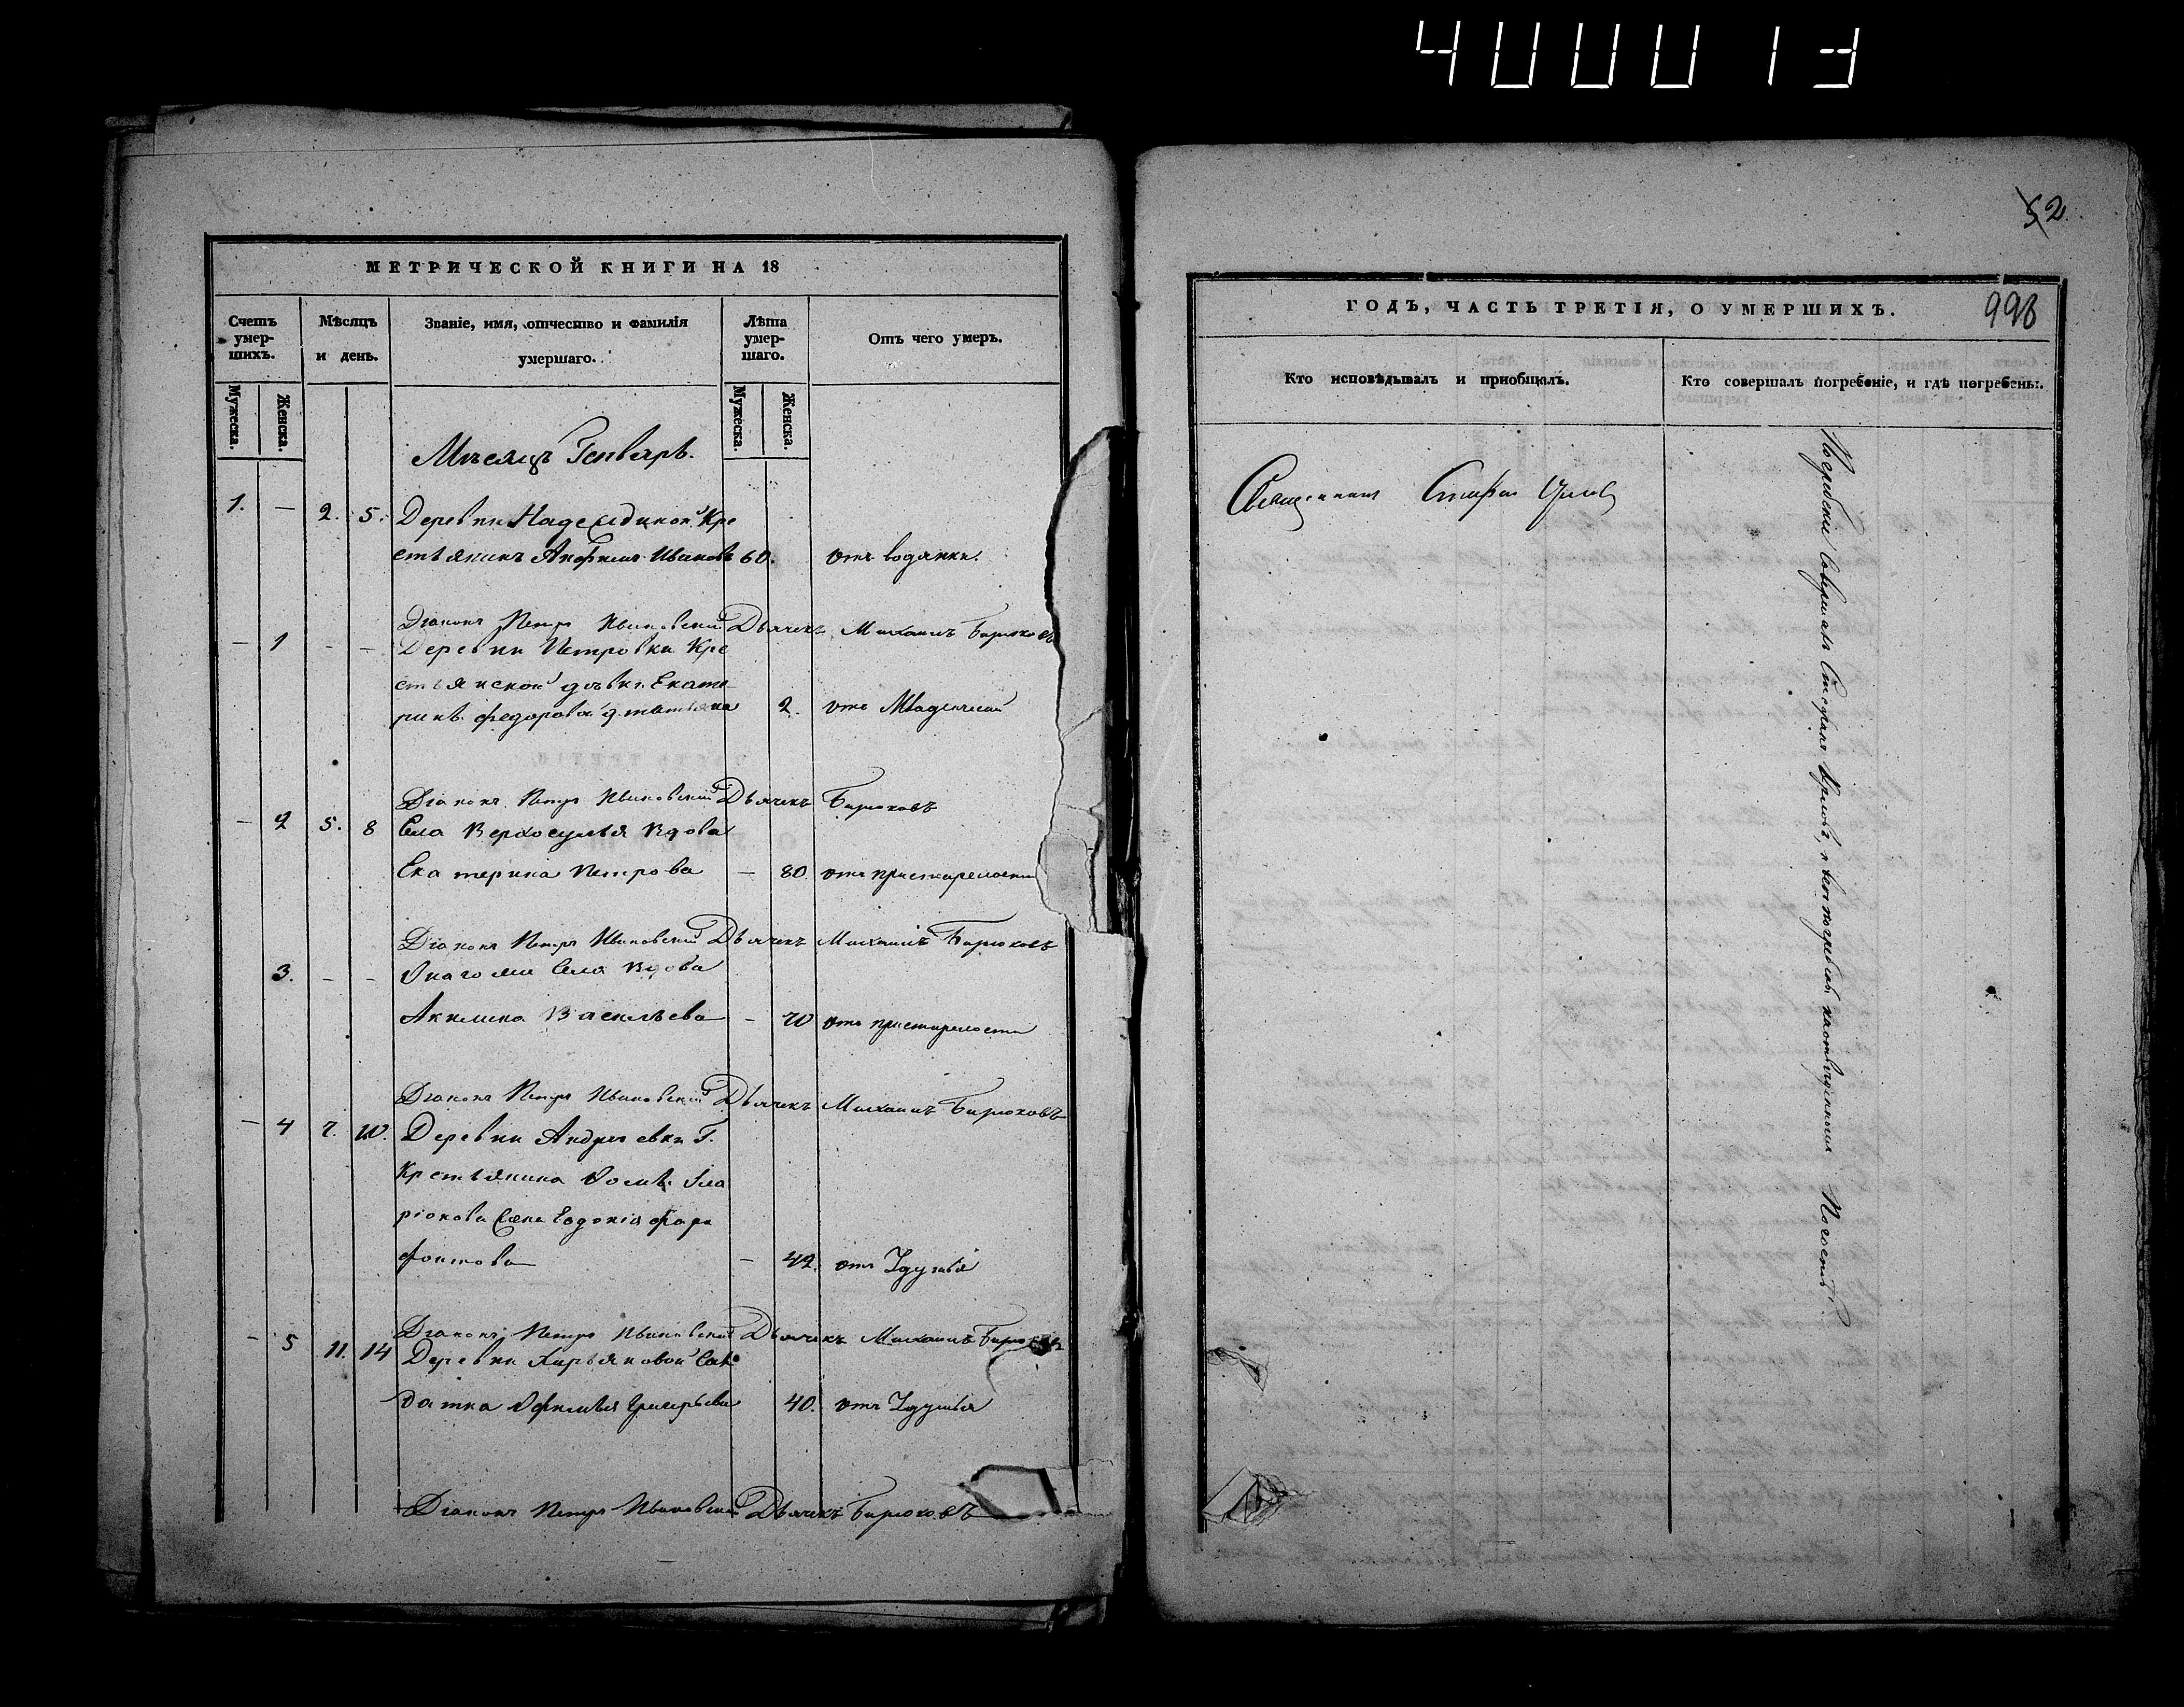 400013
МЕТРИЧЕСКОЙ КНИГИ НА 18
Счетъ умер-шихъ.
Мѣсяцъ и день.
Званіе, имя, отчество и фамилія умершаго.
Лѣта умер-шаго.
Отъ чего умеръ.
Мужеска.
Женска.
Мужеска.
Женска.
Мѣсяцъ Генварь.
1. — 2. 5. Деревни Надеждиной Кре
стьянинъ Анфимъ Ивановъ 60. отъ водянки.
Діаконъ Петръ Ивановскій Дьячекъ Михаилъ Бирюковъ
— 1 - — Деревни Петровки Кре
стьянской дѣвки Екате
рины Федоровой д. Татьяна 2. отъ Младенческой
Діаконъ Петръ Ивановскій Дьячекъ Бирюковъ
— 2 5. 8 Села Верхосулья Вдова
Екатерина Петрова — 80. отъ престарелости
Діаконъ Петръ Ивановскій Дьячекъ Михаилъ Бирюковъ
3. - - Онаго же Села Вдова
Акилина Васильева - 70 отъ престарелости
Діаконъ Петръ Ивановскій Дьячекъ Михаилъ Бирюковъ
— 4 7. 10. Деревни Андреевки Г.
Крестьянина Іла
ріонова Евдокія
— 42. отъ Удушья
Діаконъ Петръ Ивановскій Дьячекъ Михаилъ Бирюковъ
- 5 11. 14 Деревни Кирьяновой Сол
датка Офимья Григорьева 40. отъ Удушья
Діаконъ Петръ Ивановскій Дьячекъ Бирюковъ
52
ГОДЪ, ЧАСТЬ ТРЕТІЯ, О УМЕРШИХЪ.
998
Кто исповѣдывалъ и приобщалъ.
Кто совершалъ погребеніе, и гдѣ погребены.
Священникъ Стефанъ
Погребеніе Совершалъ Стефанъ и всѣ погребены